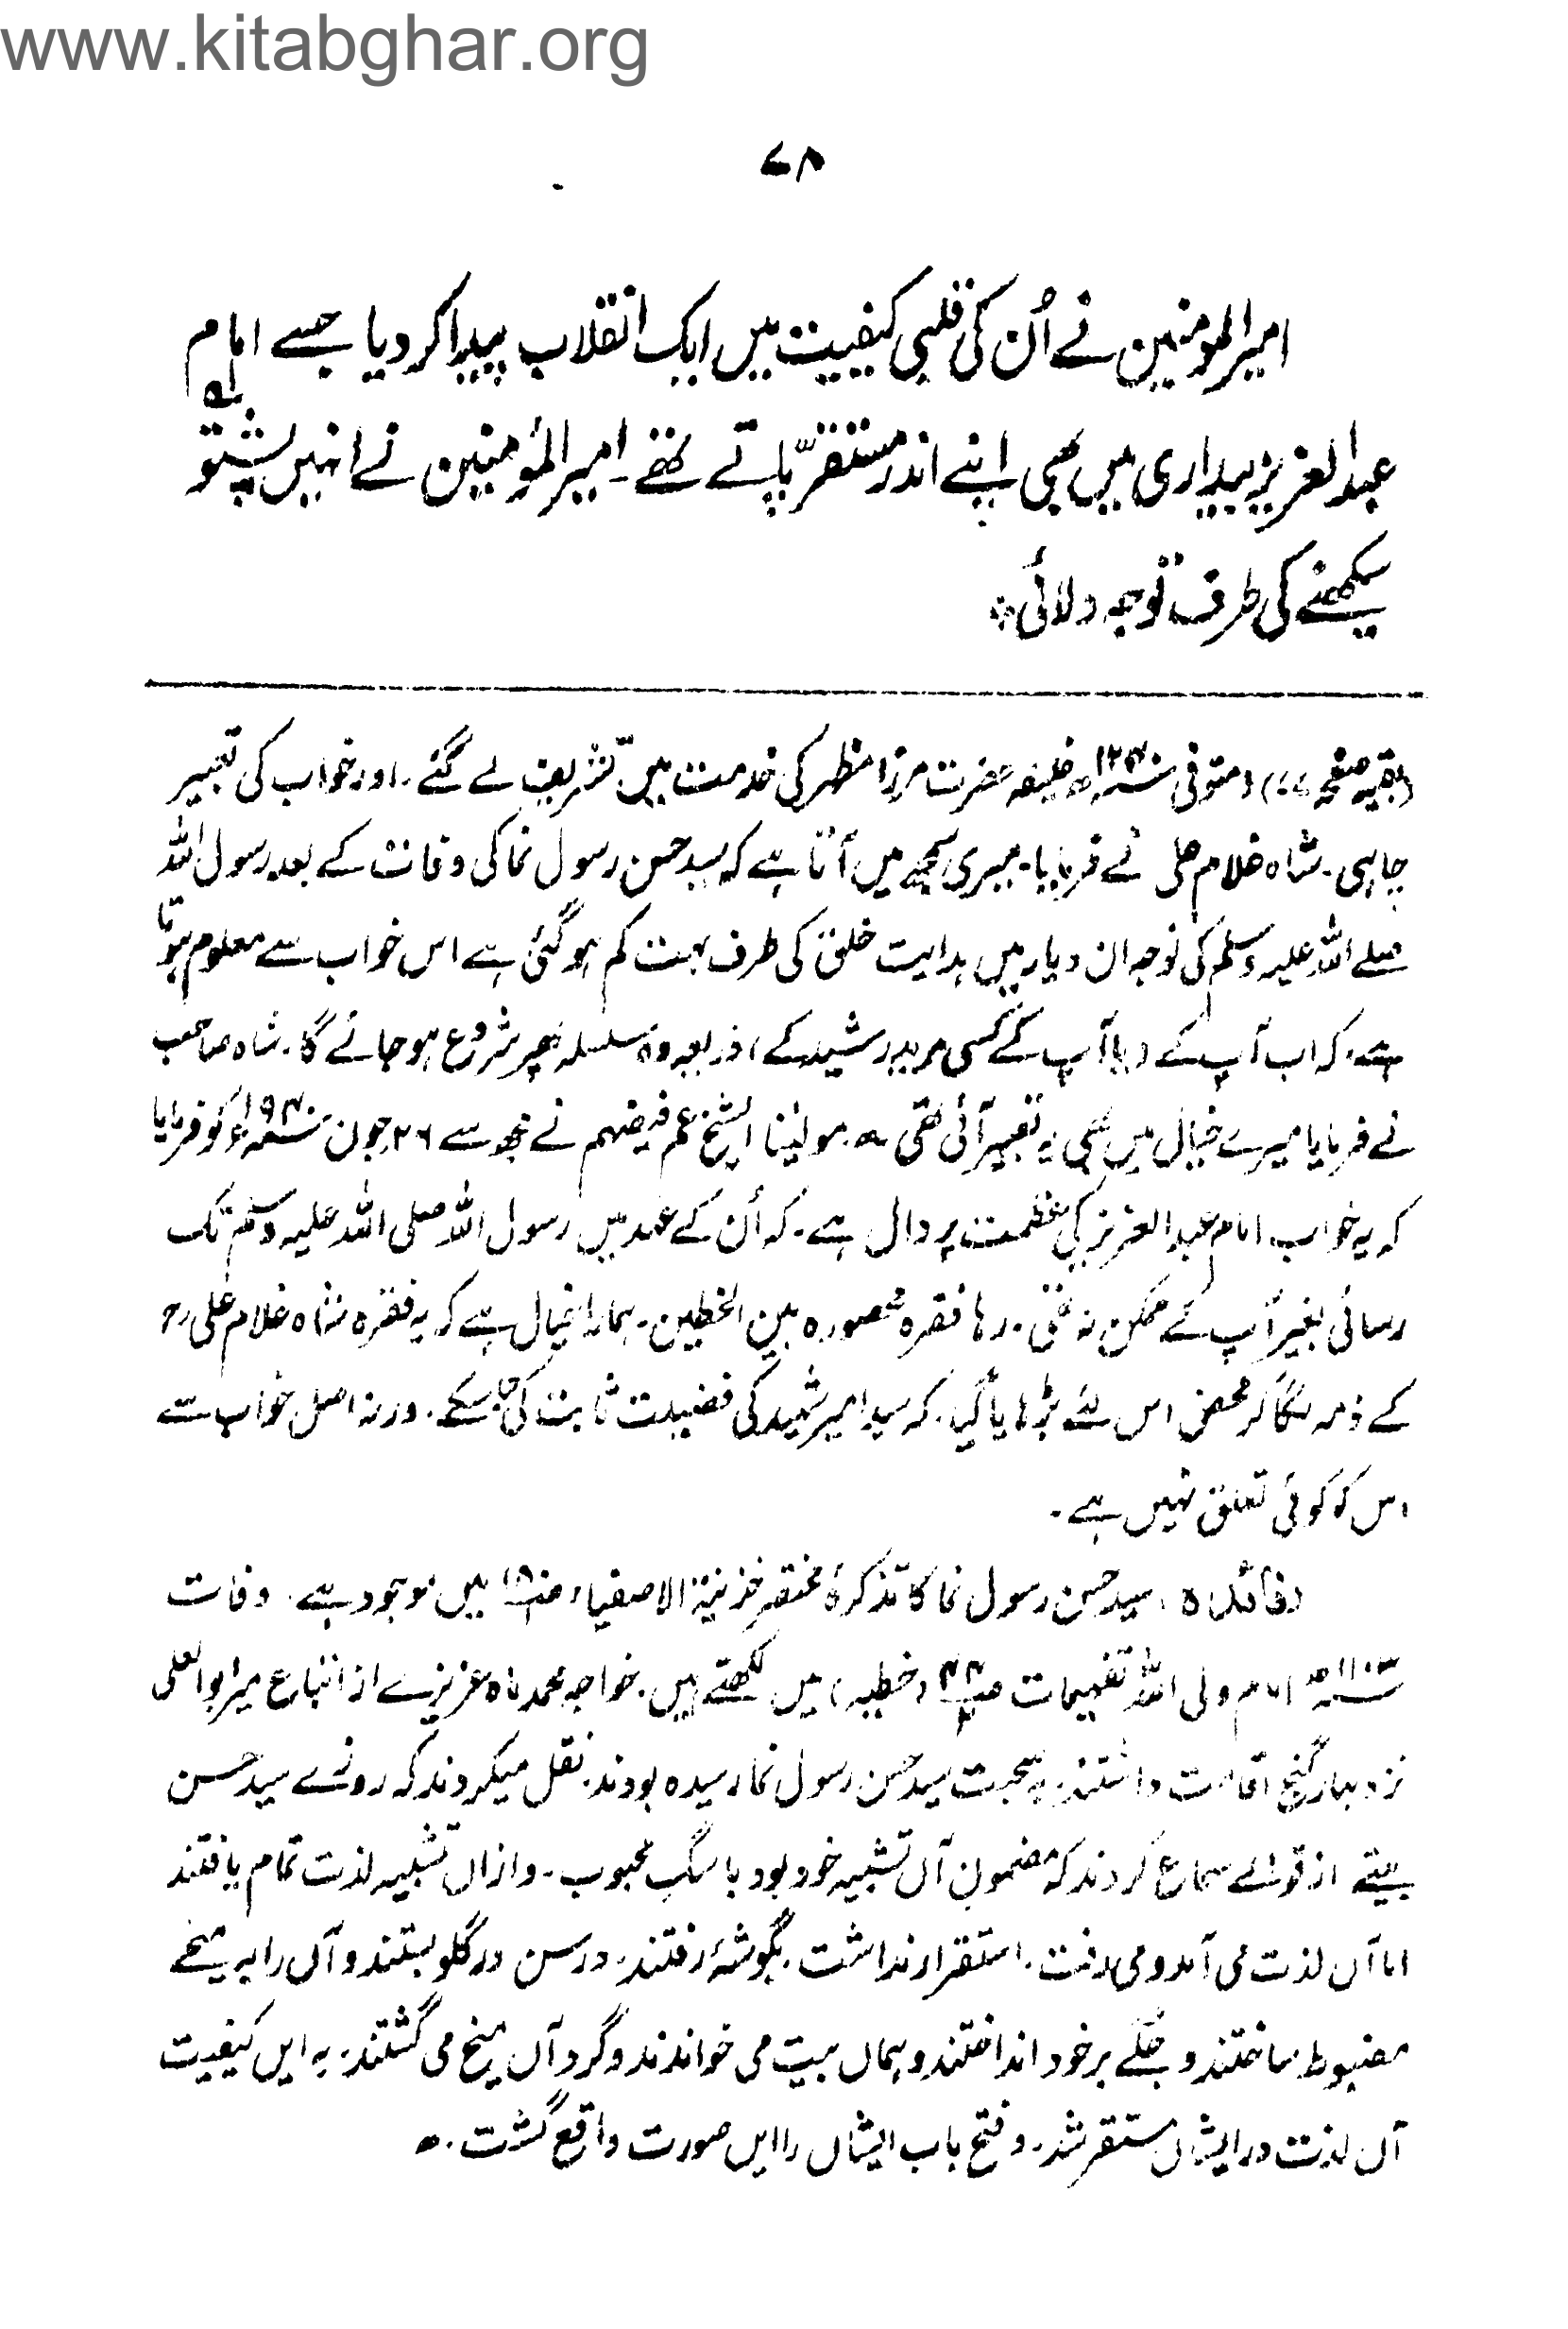 www.kitabghar.org
۷۸
امیرالمومنین نے اُن کی قلبی کیفیت میں ایک انقلاب پیدا کر دیا جسے امام
عبدالعزیز بیداری میں بھی اپنے اندر مستقرّ پاتے تھے۔ امیرالمؤمنین نے انہیں پشتو
سیکھنے کی طرف توجہ دلائی
(بقیہ صفحہ ۷۷) (متوفی ۱۲۴۰ھ خلیفہ حضرت مرزا مظہر کی خدمت میں تشریف لے گئے۔ اور خواب کی تعبیر
چاہی۔ شاہ غلام علی نے فرمایا۔ میری سمجھ میں آتا ہے کہ سید حسن رسول نما کی وفات کے بعد رسول اللہ
صلے اللہ علیہ وسلم کی توجہ ان دیار میں ہدایت خلق کی طرف بہت کم ہو گئی ہے اس خواب سے معلوم ہوتا
ہے۔ کہ اب آپ کے (یا آپ کے کسی مرید رشید کے) ذریعہ وہ سلسلہ پھر شروع ہو جائے گا۔ شاہ صاحب
نے فرمایا میرے خیال میں بھی یہ تعبیر آئی تھی ۔ مولینا الشیخ عم فیضہم نے مجھ سے ۲۶ جون ۱۹۴۰ء کو فرمایا
کہ یہ خواب امام عبدالعزیز کی عظمت پر دال ہے۔ کہ اُن کے عہد میں رسول اللہ صلی اللہ علیہ وسلم تک
رسائی بغیر آپ کے ممکن نہ تھی۔ رہا فقرہ محصورہ بین الخطین۔ ہمارا خیال ہے کہ یہ فقرہ شاہ غلام علی رح
کے ذمہ لگا کر محض اس لئے بڑھایا گیا۔ کہ سید امیر شہید کی فضیلت ثابت کی جا سکے۔ ورنہ اصل خواب سے
اس کو کوئی تعلق نہیں ہے۔
(فائدہ) سید حسن رسول نما کا تذکرہ مختصر خزینۃ الاصفیاء میں موجود ہے۔ وفات
۱۱۰۳ھ امام ولی اللہ تفہیمات (خطبہ) میں لکھتے ہیں۔ خواجہ محمد ماہ عزیزے از اتباع میر ابوالعلی
نزد بہار گنج اقامت داشتند۔ بہ صحبت سید حسن رسول نما رسیدہ بودند۔ نقل میکردند کہ روزے سید حسن
بیتے از قوالے سماع کردند کہ مضمون آں تشبیہ خود بود با سگِ محبوب۔ و ازاں تشبیہ لذت تمام یافتند
اما آں لذت می آمد و می رفت۔ استقرار نداشت۔ بگوشۂ رفتند۔ و رسن در گلو بستند و آں را بہ میخے
مضبوط ساختند و برخود انداختند و ہماں بیت می خواندند و گرد آں میخ می گشتند۔ بہ ایں کیفیت
آں لذت در ایشاں مستقر شد۔ و فتح باب ایشاں را ایں صورت واقع گشت۔